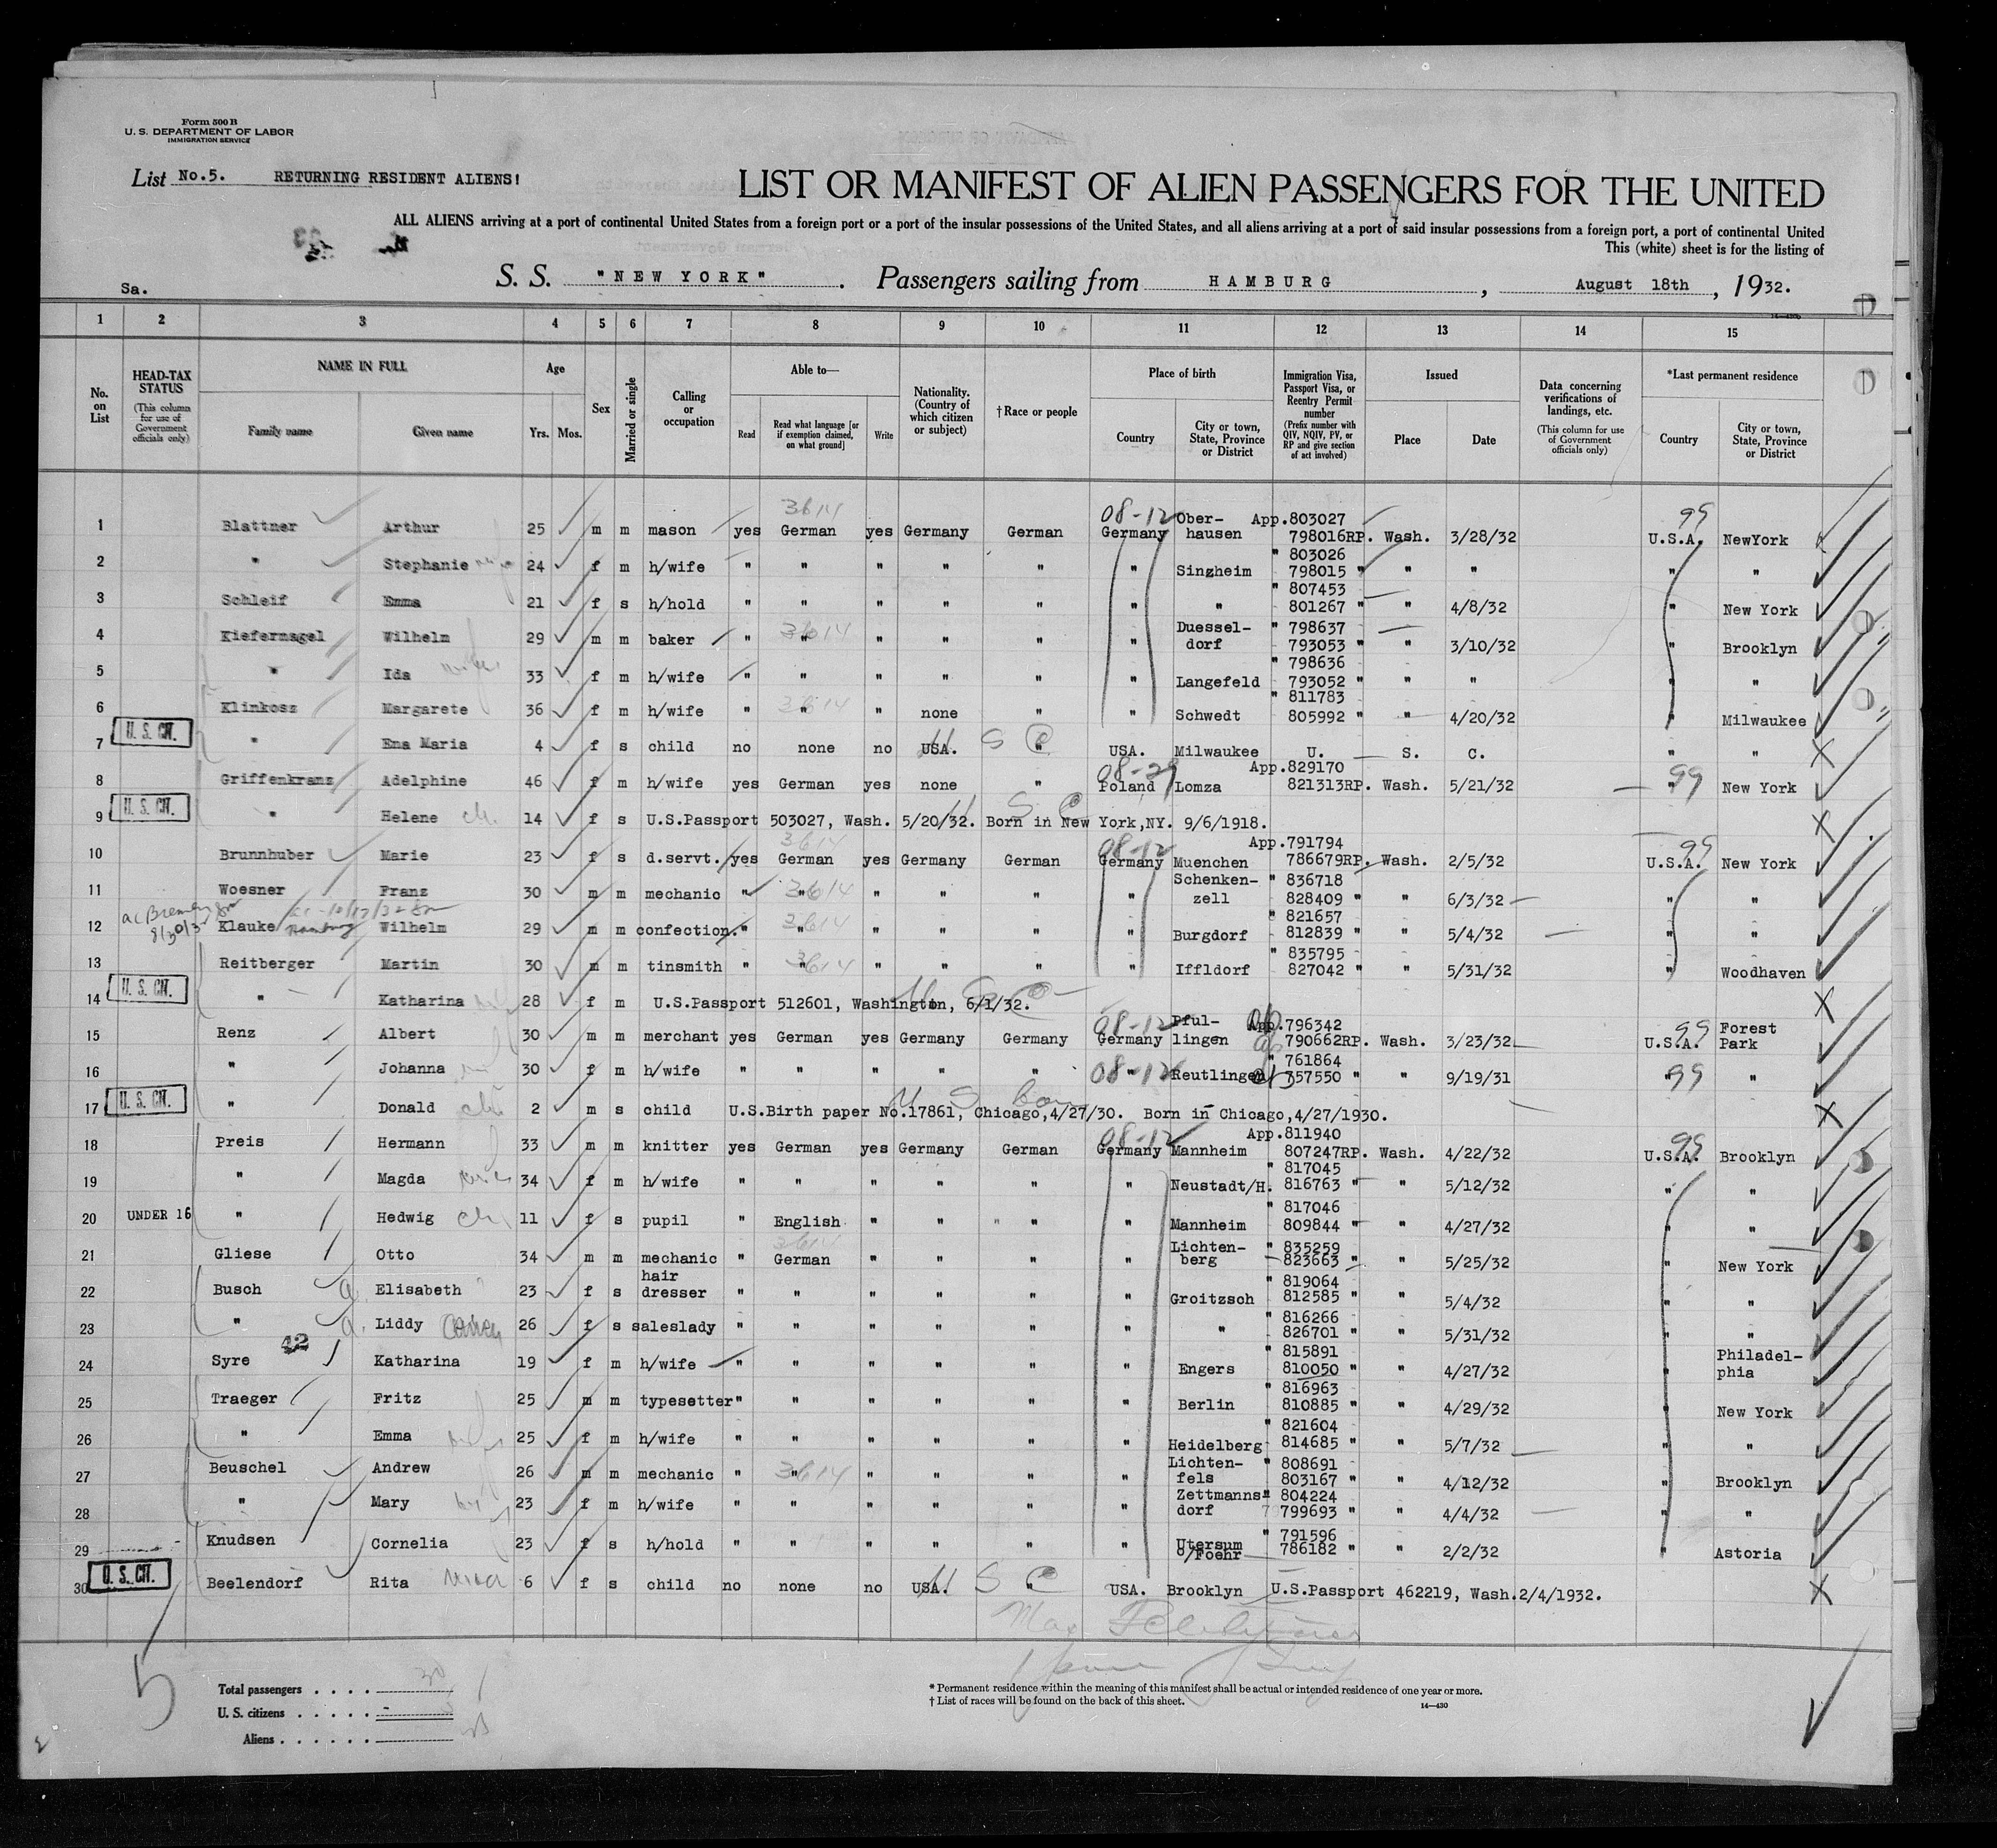 Form 500 B
U. S. DEPARTMENT OF LABOR
IMMIGRATION SERVICE
List No.5. RETURNING RESIDENT ALIENS!
LIST OR MANIFEST OF ALIEN PASSENGERS FOR THE UNITED
ALL ALIENS arriving at a port of continental United States from a foreign port or a port of the insular possessions of the United States, and all aliens arriving at a port of said insular possessions from a foreign port, a port of continental United
This (white) sheet is for the listing of
Sa. S. S. "NEW YORK". Passengers sailing from HAMBURG, August 18th, 1932.
14-430
1 2 3 4 5 6 7 8 9 10 11 12 13 14 15
No. on List
HEAD-TAX STATUS
(This column for use of Government officials only)
NAME IN FULL
Family name Given name
Age
Yrs. Mos.
Sex
Married or single
Calling or occupation
Able to—
Read Read what language [or if exemption claimed, on what ground] Write
Nationality. (Country of which citizen or subject)
† Race or people
Place of birth
Country City or town, State, Province or District
Immigration Visa, Passport Visa, or Reentry Permit number
(Prefix number with QIV, NQIV, PV, or RP and give section of act involved)
Issued
Place Date
Data concerning verifications of landings, etc.
(This column for use of Government officials only)
*Last permanent residence
Country City or town, State, Province or District
3614 08-12 99
1 Blattner Arthur 25 m m mason yes German yes Germany German Germany Ober-hausen App.803027 798016RP. Wash. 3/28/32 U.S.A. NewYork
2 " Stephanie 24 f m h/wife " " " " " " Singheim " 803026 798015 " " " " "
3 Schleif Emma 21 f s h/hold " " " " " " " " 807453 801267 " " 4/8/32 " New York
4 Kiefernagel Wilhelm 29 m m baker " " 3614 " " " " Duessel-dorf " 798637 793053 " " 3/10/32 " Brooklyn
5 " Ida wife 33 f m h/wife " " " " " " Langefeld " 798636 793052 " " " " "
6 Klinkosz Margarete 36 f m h/wife " " 3614 " none " " Schwedt " 811783 805992 " " 4/20/32 " Milwaukee
U. S. CIT.
7 " Ena Maria 4 f s child no none no USA. U S C " USA. Milwaukee U. S. C. " "
8 Griffenkranz Adelphine 46 f m h/wife yes German yes none " 08-29 Poland Lomza App.829170 821313RP. Wash. 5/21/32 " 99 New York
U. S. CIT.
9 " Helene ch. 14 f s U.S.Passport 503027, Wash. 5/20/32. Born in New York,NY. 9/6/1918. U S C
10 Brunnhuber Marie 23 f s d.servt. yes German 3614 yes Germany German 08-12 Germany Muenchen App.791794 786679RP. Wash. 2/5/32 99 U.S.A. New York
11 Woesner Franz 30 m m mechanic " " 3614 " " " " Schenken-zell " 836718 828409 " " 6/3/32 " "
12 Klauke Wilhelm 29 m m confection. " " 3614 " " " " Burgdorf " 821657 812839 " " 5/4/32 " "
13 Reitberger Martin 30 m m tinsmith " " 3614 " " " " Iffldorf " 835795 827042 " " 5/31/32 " Woodhaven
U. S. CIT.
14 " Katharina 28 f m U.S.Passport 512601, Washington, 6/1/32. U S C
15 Renz Albert 30 m m merchant yes German yes Germany German 08-12 Germany Pful-lingen App.796342 790662RP. Wash. 3/23/32 99 U.S.A. Forest Park
16 " Johanna 30 f m h/wife " " " " " 08-12 " Reutlingen " 761864 757550 " " 9/19/31 " 99 "
U. S. CIT.
17 " Donald 2 m s child U.S.Birth paper No.17861, Chicago,4/27/30. Born in Chicago,4/27/1930. U S born
18 Preis Hermann 33 m m knitter yes German yes Germany German 08-12 Germany Mannheim App.811940 807247RP. Wash. 4/22/32 99 U.S.A. Brooklyn
19 " Magda wife 34 f m h/wife " " " " " " Neustadt/H. " 817045 816763 " " 5/12/32 " "
20 UNDER 16 " Hedwig ch. 11 f s pupil " English " " " " Mannheim " 817046 809844 " " 4/27/32 " "
21 Gliese Otto 34 m m mechanic " 3614 German " " " " Lichten-berg " 835259 823663 " " 5/25/32 " New York
22 Busch Elisabeth 23 f s hair dresser " " " " " " Groitzsch " 819064 812585 " " 5/4/32 " "
23 " Liddy 26 f s saleslady " " " " " " " " 816266 826701 " " 5/31/32 " "
42
24 Syre Katharina 19 f m h/wife " " " " " " Engers " 815891 810050 " " 4/27/32 " Philadel-phia
25 Traeger Fritz 25 m m typesetter " " " " " " Berlin " 816963 810885 " " 4/29/32 " New York
26 " Emma 25 f m h/wife " " " " " " Heidelberg " 821604 814685 " " 5/7/32 " "
27 Beuschel Andrew 26 m m mechanic " " 3614 " " " " Lichten-fels " 808691 803167 " " 4/12/32 " Brooklyn
28 " Mary 23 f m h/wife " " " " " " Zettmanns-dorf " 804224 799693 " " 4/4/32 " "
29 Knudsen Cornelia 23 f s h/hold " " " " " " Utersum o/Foehr " 791596 786182 " " 2/2/32 " Astoria
U. S. CIT.
30 Beelendorf Rita 6 f s child no none no USA. U S C " USA. Brooklyn U.S.Passport 462219, Wash.2/4/1932.
5
Total passengers . . . . 30
U. S. citizens . . . . .
Aliens . . . . . .
* Permanent residence within the meaning of this manifest shall be actual or intended residence of one year or more.
† List of races will be found on the back of this sheet.
14-430